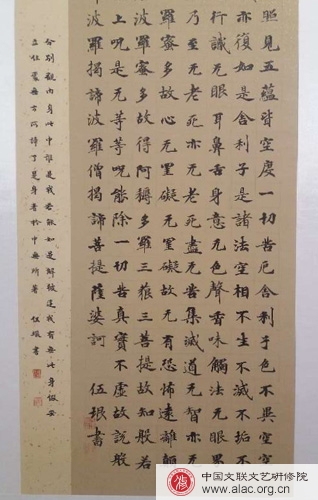 照見五蘊皆空度一切苦厄舍利子色不異空空
亦復如是舍利子是諸法空相不生不滅不垢不
行識无眼耳鼻舌身意无色聲香味觸法无眼界
乃至无老死亦无老死盡无苦集滅道无智亦无
羅蜜多故心无罣礙无罣礙故无有恐怖遠離顛
波羅蜜多故得阿耨多羅三藐三菩提故知般若
上咒是无等等咒能除一切苦真實不虛故說般
波羅揭諦波羅僧揭諦菩提薩婆訶 伍書
分別觀內身此中誰是我若能如是解彼達我有無此身假安
立住處無方所諦了是身者於中無所著 伍書
中国文联文艺研修院
www.alac.org.cn